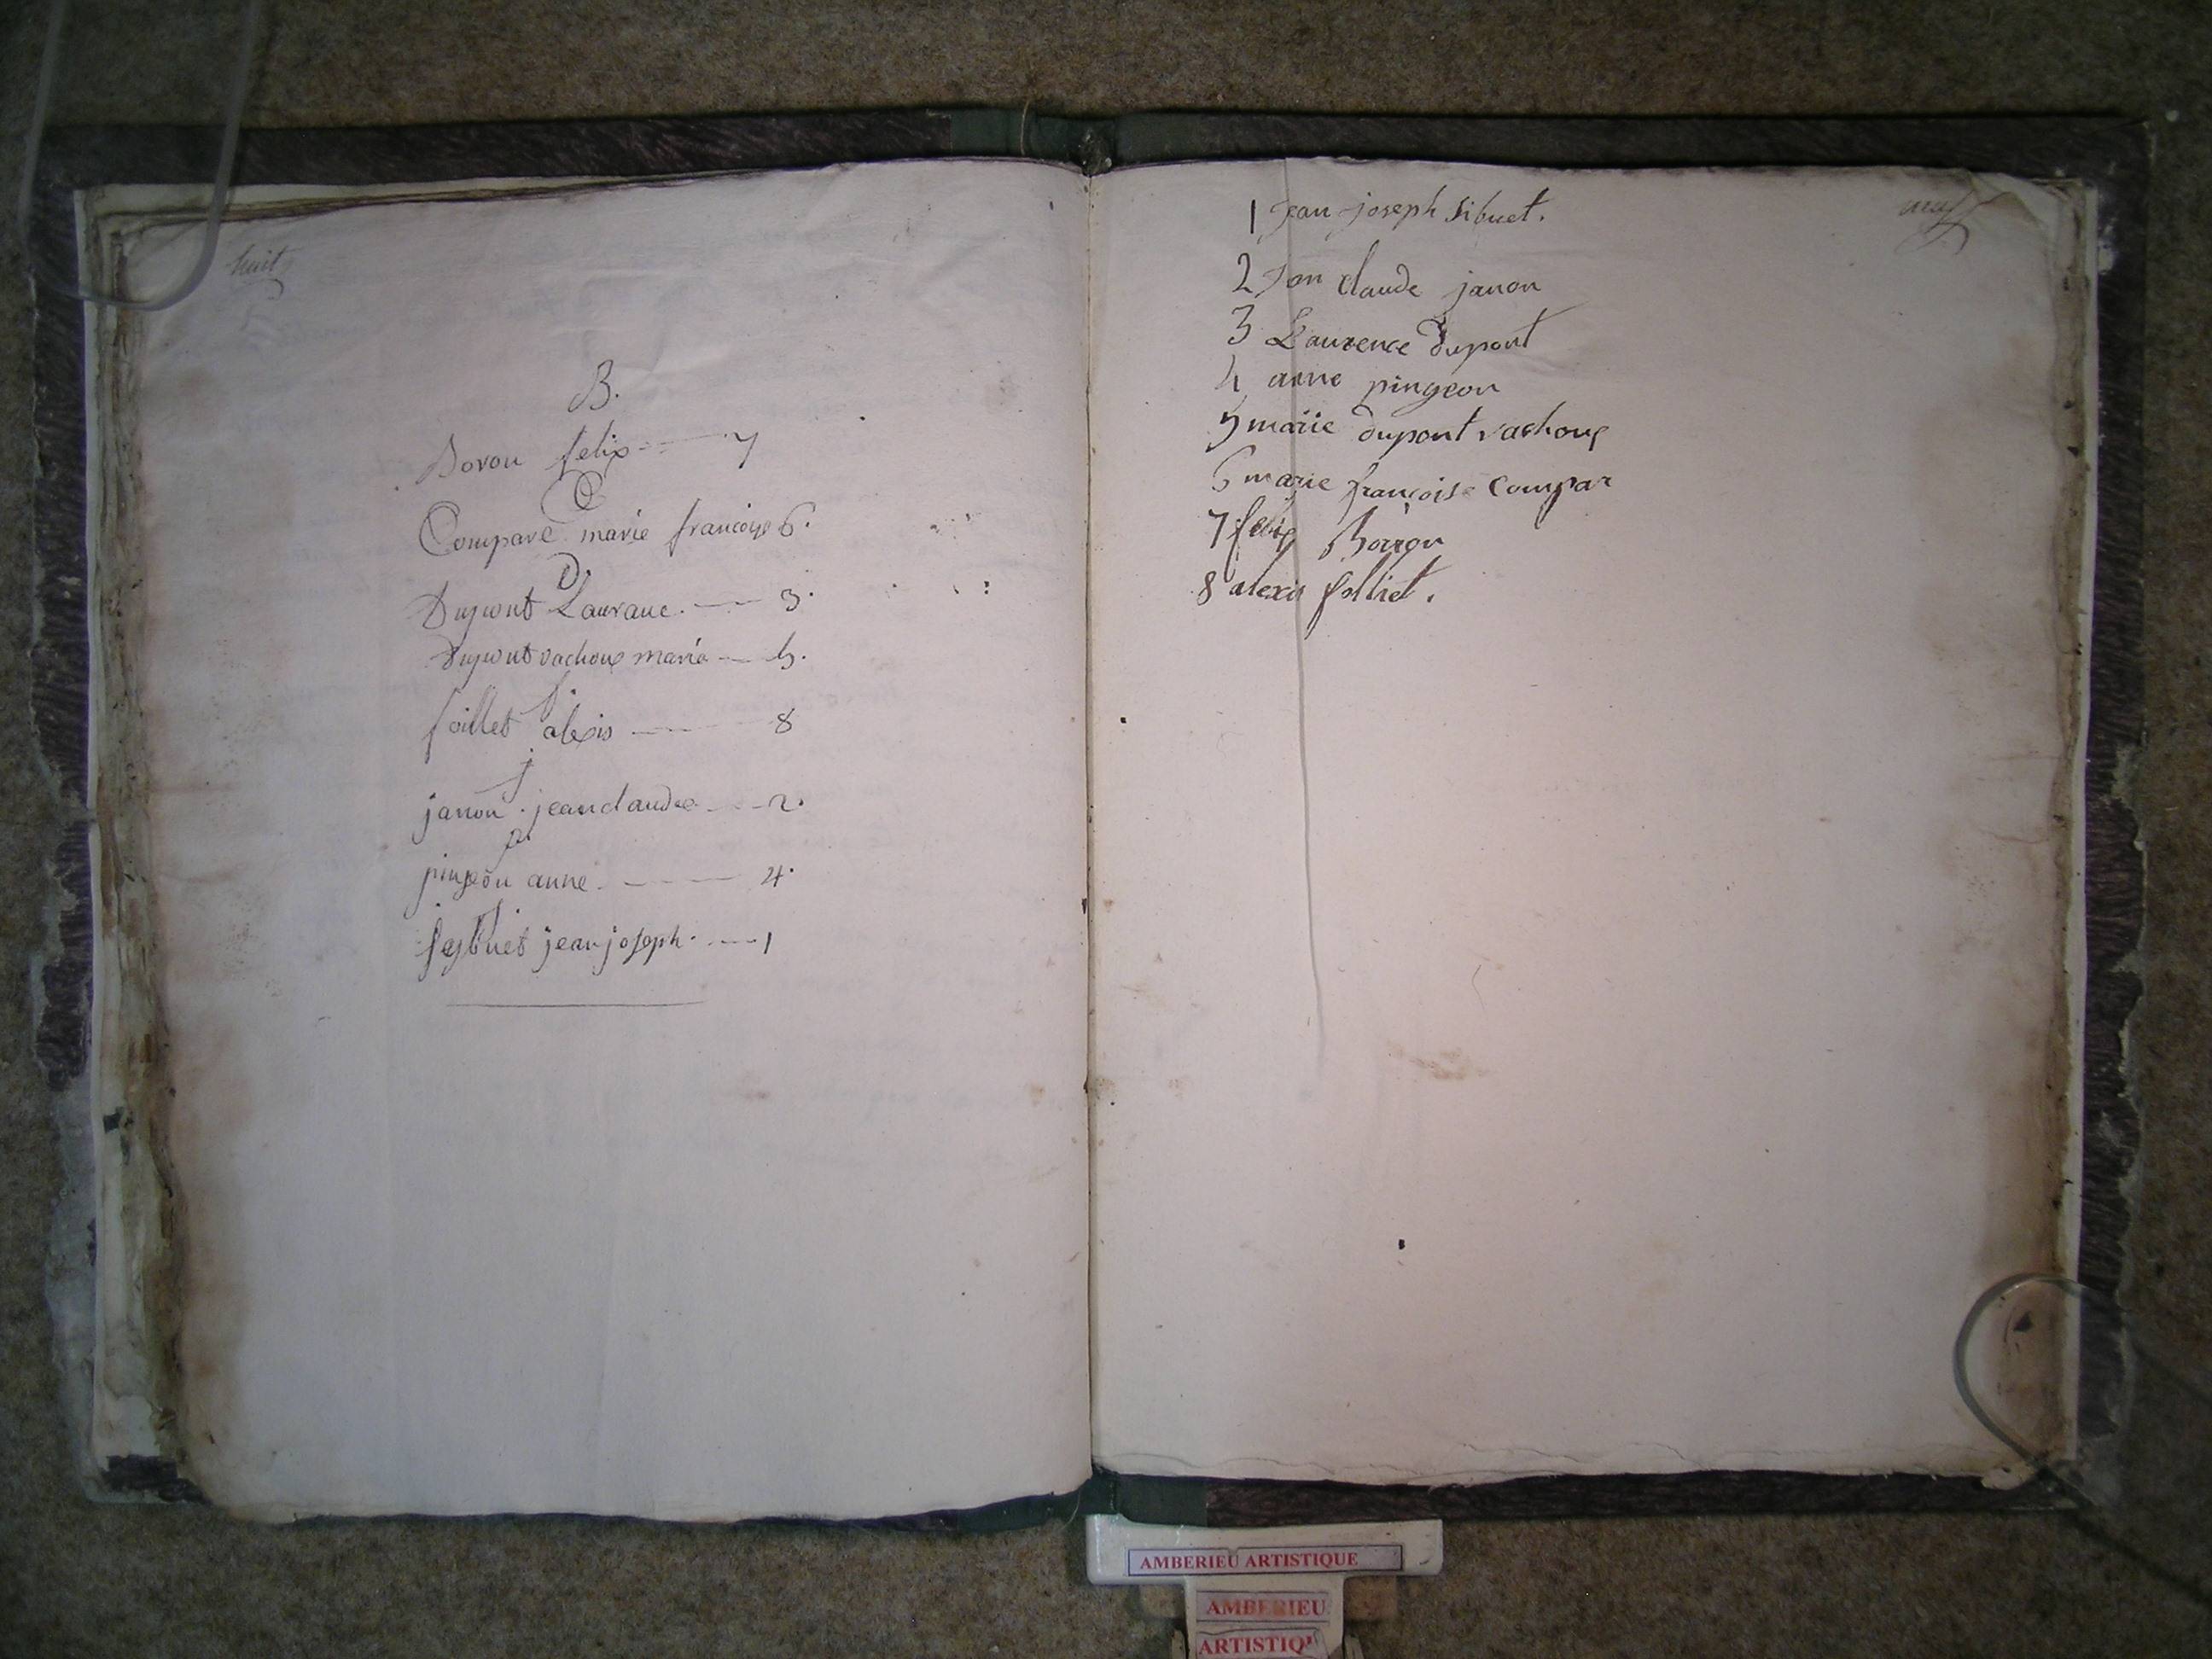 huit
B.
Boron felix 7
C
Compare marie françoise 6.
D.
Dupont Laurance. 3.
Dupont vachoux maria 5.
f.
foillet alexis 8
j
janon jeanclaude 2.
p.
pingeon anne. 4.
S.
seybuet jean joseph. 1
neuf
1 Jean joseph Sibuet.
2 Jan claude janon
3 Laurence dupont
4 anne pingeon
5 marie dupont vachoux
6 marie françoise Compar
7 felix Boiron
8 alexis folliet.
AMBERIEU ARTISTIQUE
AMBERIEU
ARTISTIQ